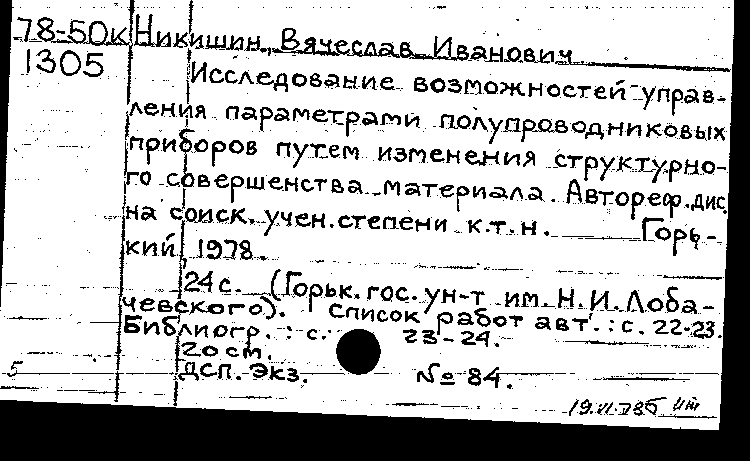 78-50к Никишин, Вячеслав Иванович
1305 Исследование возможностей управ-
ления параметрами полупроводниковых
приборов путем изменения структурно-
го совершенства материала. Автореф. дис.
на соиск. учен. степени к.т.н. Горь-
кий, 1978.
24 с. (Горьк. гос. ун-т им. Н.И. Лоба-
чевского). Список работ авт.: с. 22-23.
Библиогр.: с. 23-24.
20 см.
ДСП. Экз. № 84.
5
19.VI.78б